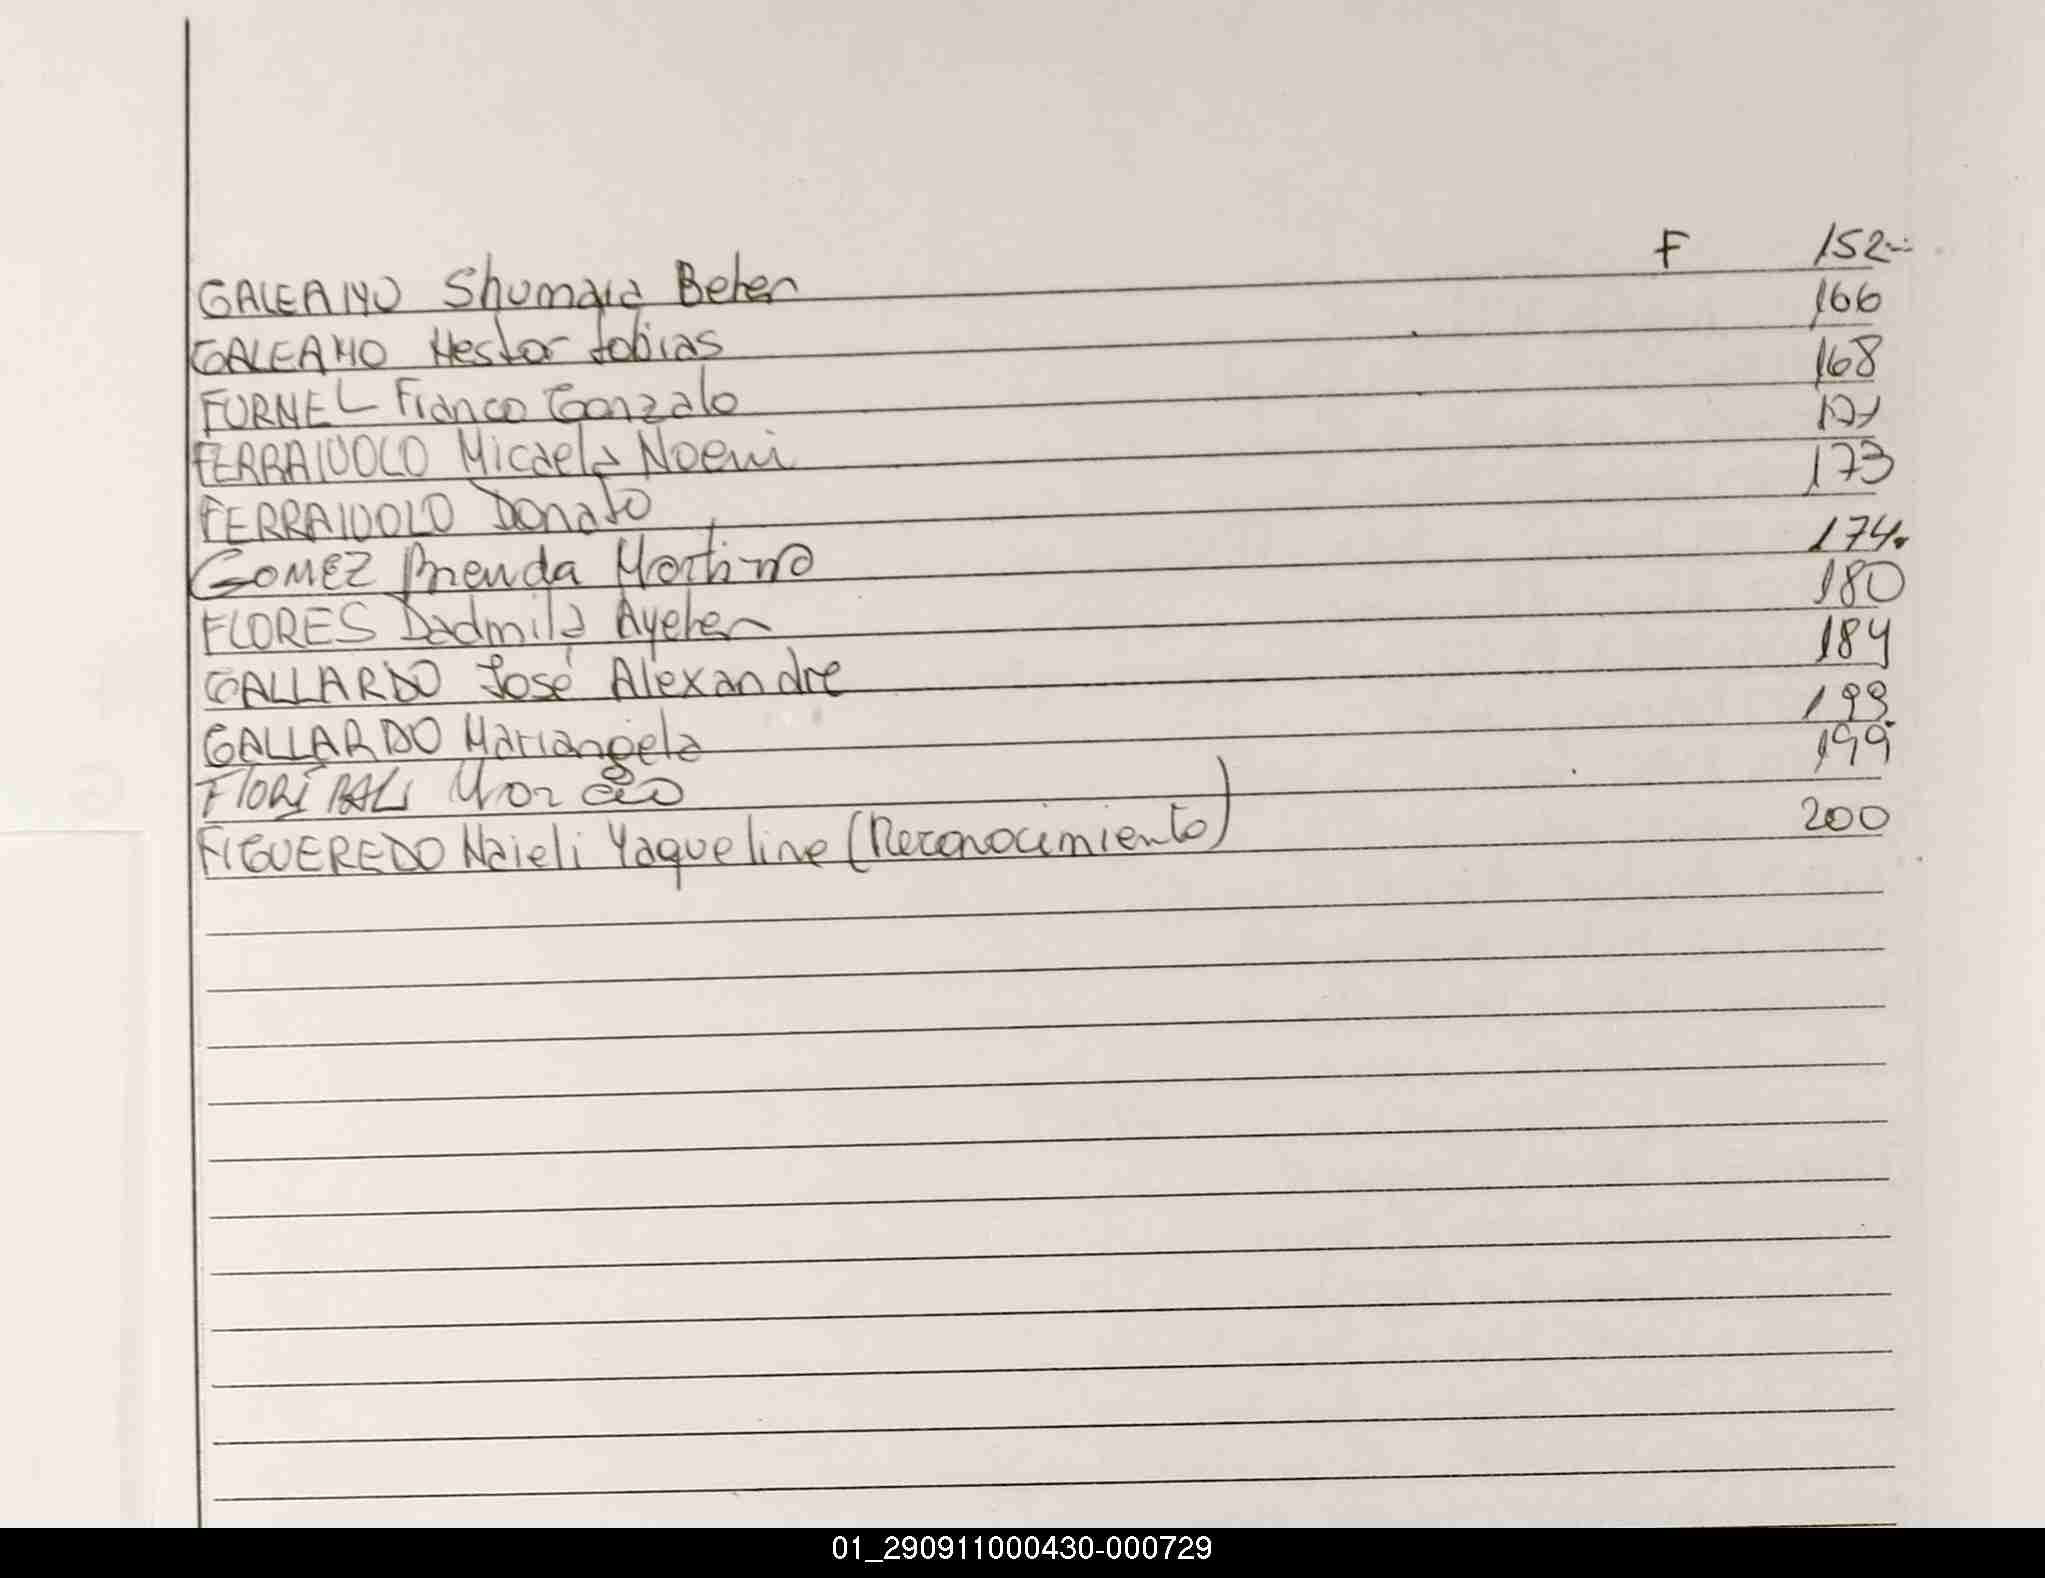 GALEANO Shumaia Belen F 152
GALEANO Nestor tobias 166
FORNEL Franco Gonzalo 168
FERRAIUOLO Micaela Noemi
FERRAIUOLO Donato 173
GOMEZ Brenda Martina 174.
FLORES Dadmila Ayelen 180
GALLARDO José Alexandre 184
GALLARDO Mariangela 193.
199
FIGUEREDO Naieli Yaqueline (Reconocimiento) 200
01_290911000430-000729